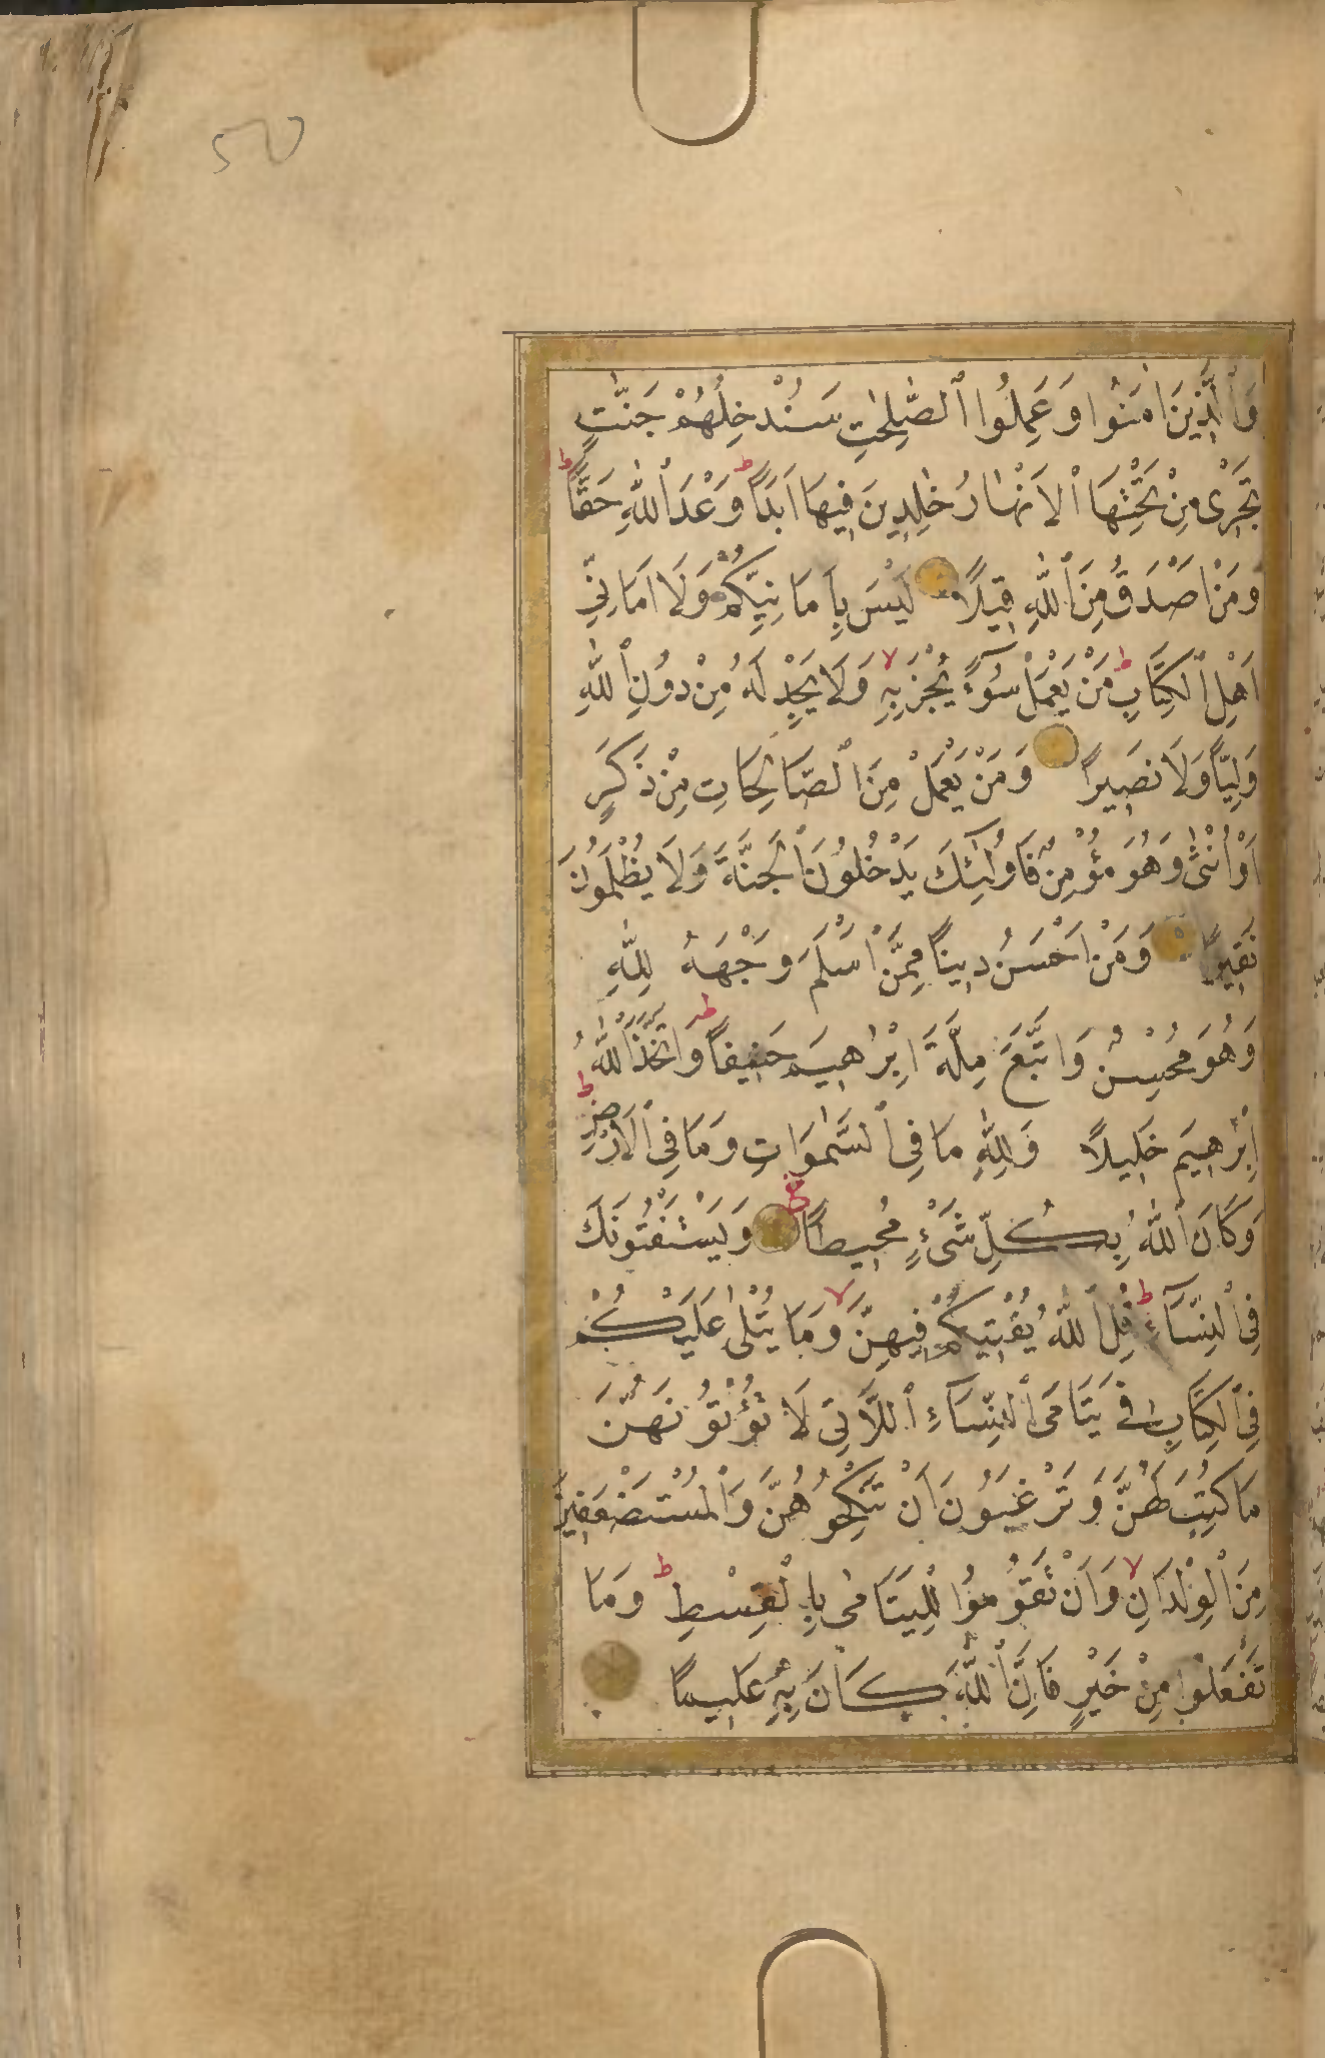 ۵۲
وَٱلَّذِينَ اٰمَنُوا وَعَمِلُوا ٱلصّٰلِحٰتِ سَنُدْخِلُهُمْ جَنّٰتٍ
تَجْرٖى مِنْ تَحْتِهَا ٱلْاَنْهَارُ خٰلِدِينَ فِيهَا اَبَدًا ط وَعْدَ ٱللّٰهِ حَقًّا ط
وَمَنْ اَصْدَقُ مِنَ ٱللّٰهِ قِيلًا لَيْسَ بِاَمَانِيِّكُمْ وَلَا اَمَانِيِّ
اَهْلِ ٱلْكِتَابِ ط مَنْ يَعْمَلْ سُوٓءً يُجْزَ بِهِ لا وَلَا يَجِدْ لَهُ مِنْ دُونِ ٱللّٰهِ
وَلِيًّا وَلَا نَصِيرًا وَمَنْ يَعْمَلْ مِنَ ٱلصَّالِحَاتِ مِنْ ذَكَرٍ
اَوْ اُنْثٰى وَهُوَ مُؤْمِنٌ فَاُولٰٓئِكَ يَدْخُلُونَ ٱلْجَنَّةَ وَلَا يُظْلَمُونَ
نَقِيرًا وَمَنْ اَحْسَنُ دِينًا مِمَّنْ اَسْلَمَ وَجْهَهُ لِلّٰهِ
وَهُوَ مُحْسِنٌ وَاتَّبَعَ مِلَّةَ اِبْرٰاهِيمَ حَنِيفًا ط وَاتَّخَذَ ٱللّٰهُ
اِبْرٰهِيمَ خَلِيلًا وَلِلّٰهِ مَا فِى ٱلسَّمٰوَاتِ وَمَا فِى ٱلْاَرْضِ ط
وَكَانَ ٱللّٰهُ بِكُلِّ شَىْءٍ مُحِيطًا وَيَسْتَفْتُونَكَ
فِى ٱلنِّسَآءِ ط قُلِ ٱللّٰهُ يُفْتِيكُمْ فِيهِنَّ لا وَمَا يُتْلٰى عَلَيْكُمْ
فِى ٱلْكِتَابِ فِى يَتَامَى ٱلنِّسَآءِ ٱللَّاتِى لَا تُؤْتُونَهُنَّ
مَا كُتِبَ لَهُنَّ وَتَرْغَبُونَ اَنْ تَنْكِحُوهُنَّ وَٱلْمُسْتَضْعَفِينَ
مِنَ ٱلْوِلْدَانِ لا وَاَنْ تَقُومُوا لِلْيَتَامٰى بِالْقِسْطِ ط وَمَا
تَفْعَلُوا مِنْ خَيْرٍ فَاِنَّ ٱللّٰهَ كَانَ بِهِ عَلِيمًا